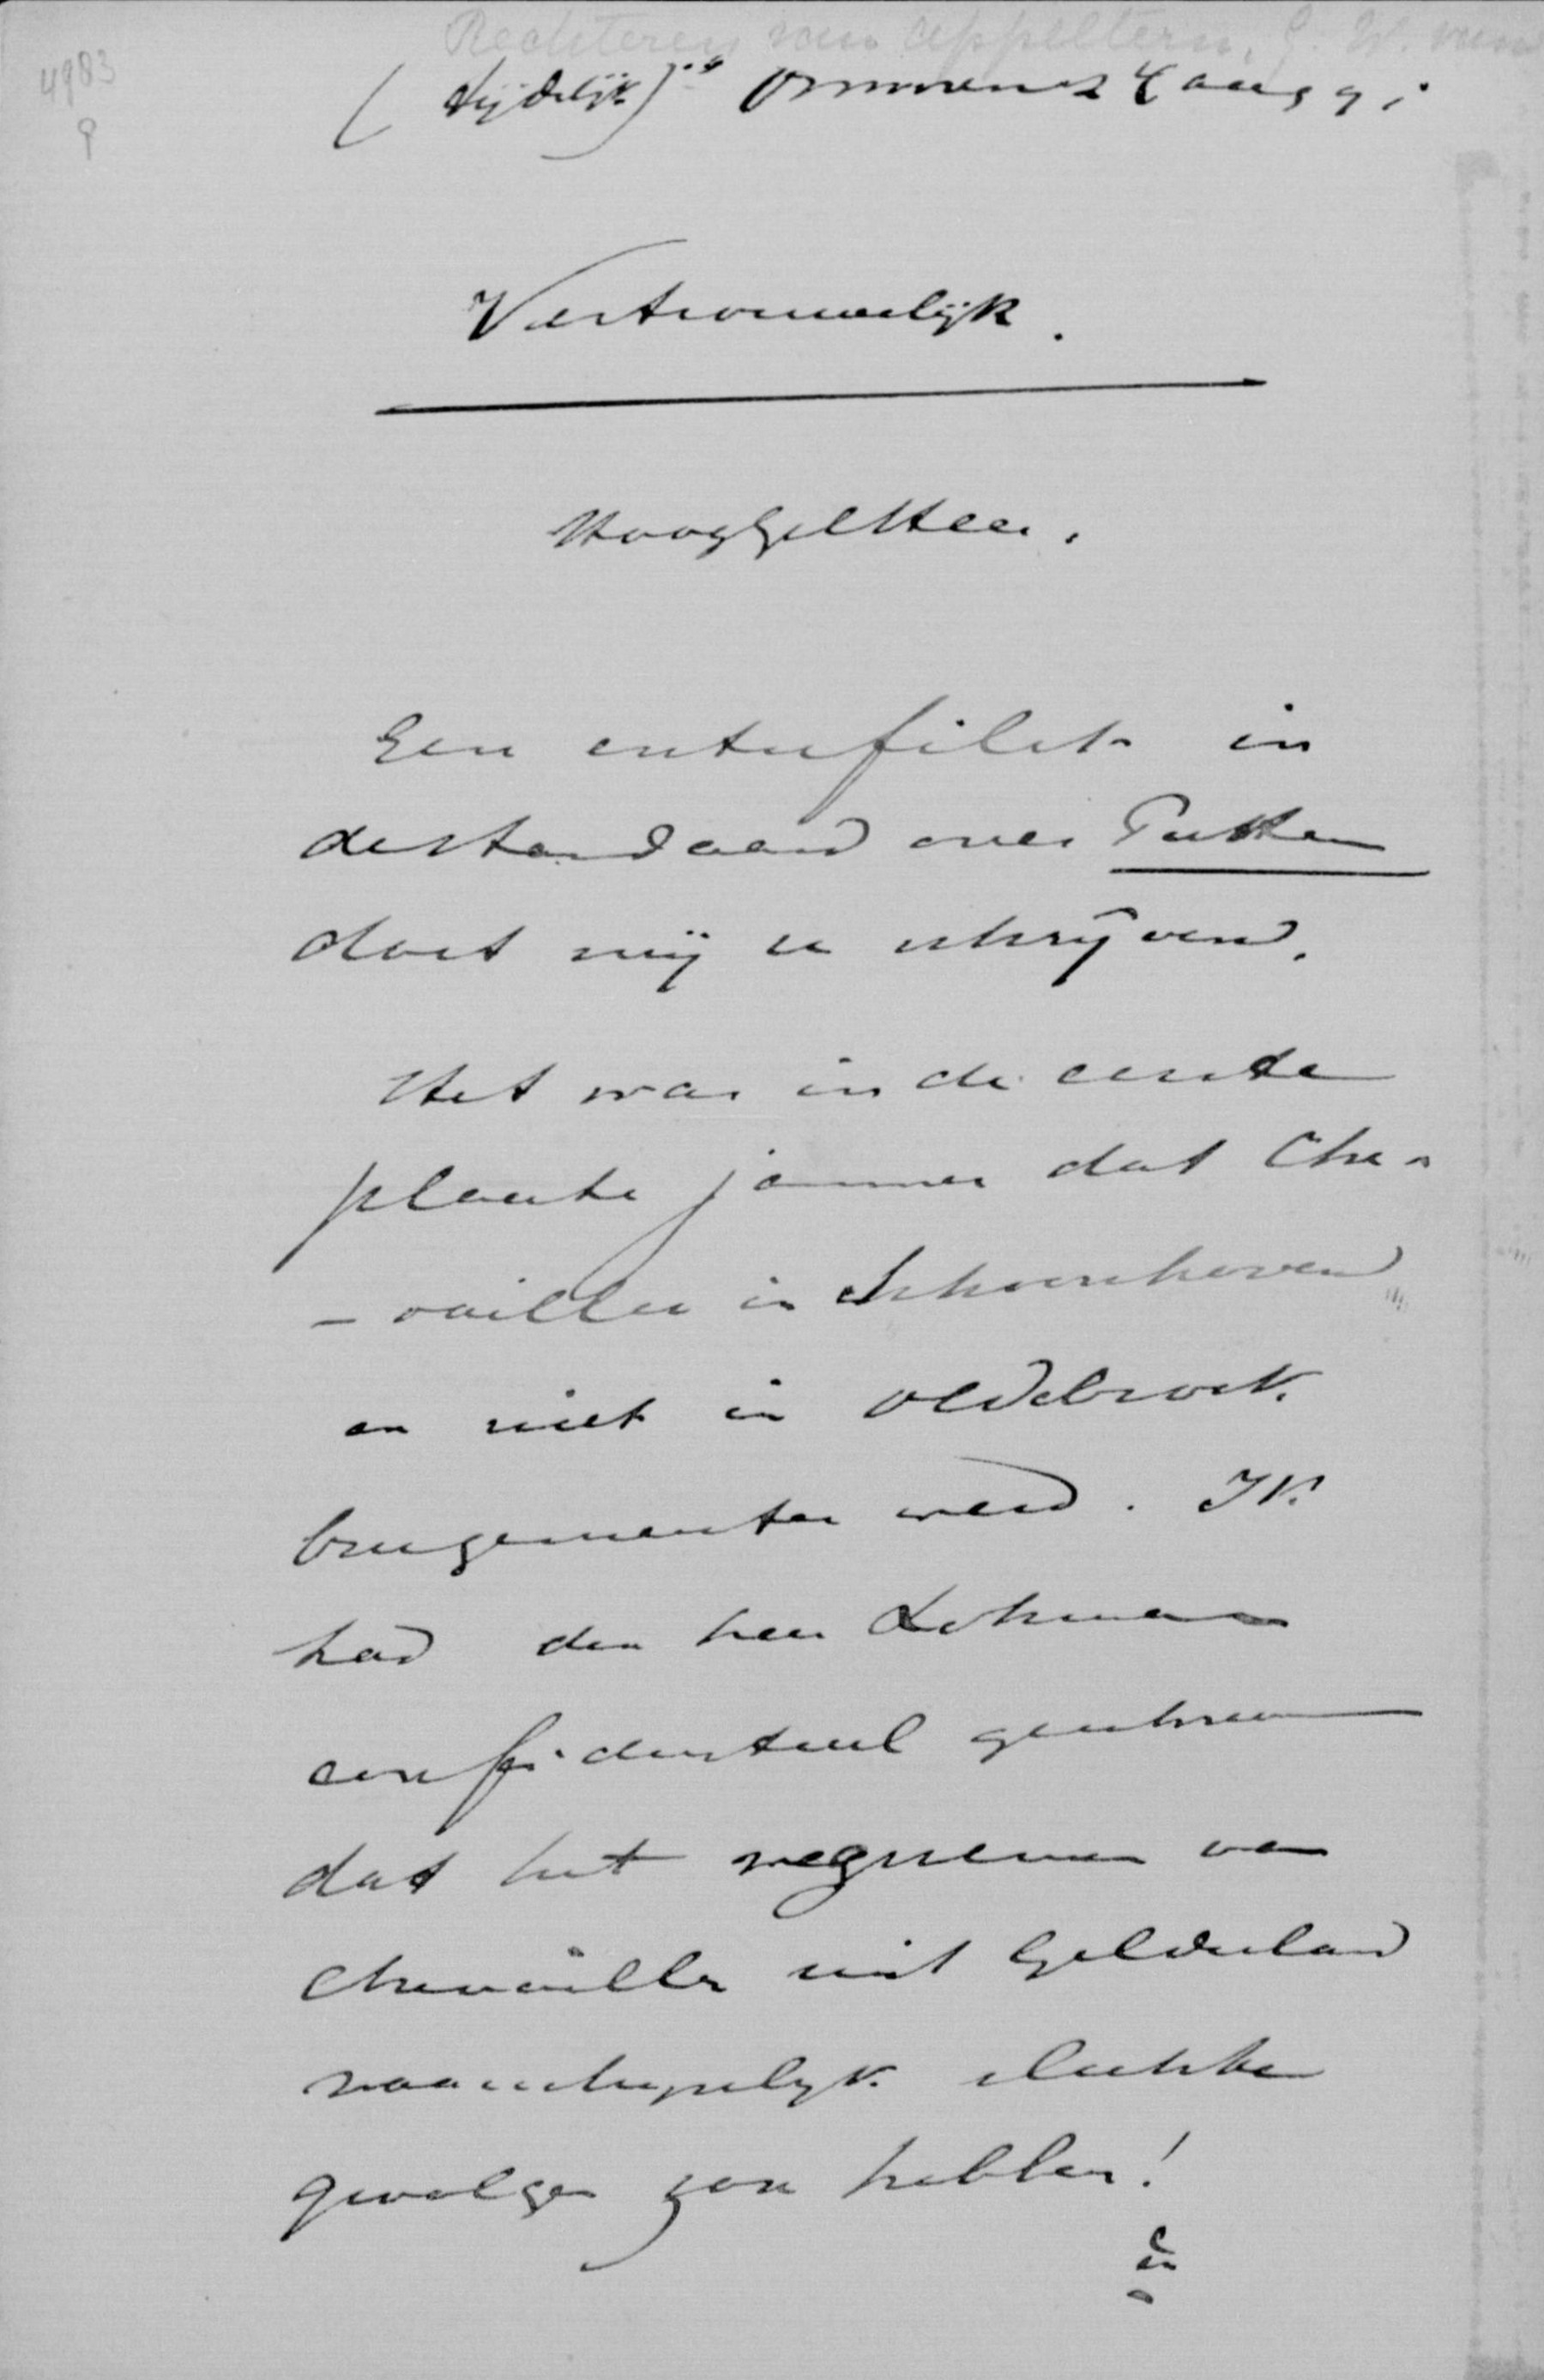 Rechteren van Appeltern, G. W. van
4983
9
(tijdelijk) Ommen 2 Aug 91
Vertrouwelijk.
HoogGelHeer.
Een entrefilet in
de Standaard over Putten
doet mij u schrijven.
Het was in de eerste
plaats jammer dat Che-
-vallier in Schoonhoven
en niet in Oldebroek
burgemeester werd. Ik
had den heer Lohman
confidentieel geschreven
dat het wegnemen van
Chevallier uit Gelderland
waarschijnlijk slechte
gevolgen zou hebben!
en